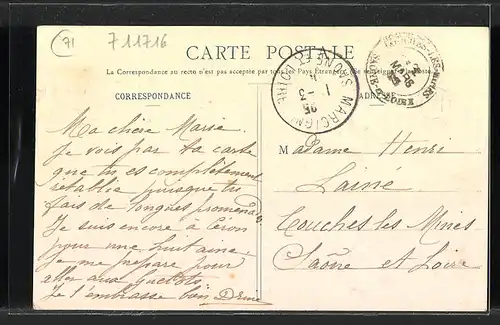 71
711716
CARTE POSTALE
La Correspondance au recto n'est pas acceptée par tous les Pays Étrangers
CORRESPONDANCE
ADRESSE
MARCIGNY
SAONE ET LOIRE
COUCHES-LES-MINES
SAONE-ET-LOIRE
Ma chère Marie
Je vois par ta carte
que tu es complètement
rétablie puisque tu
fais de longues promenades
Je suis encore à Céron
pour une huitaine
Je me prépare pour
aller aux
Je t'embrasse bien
Madame Henri
Lainé
Couches les Mines
Saône et Loire